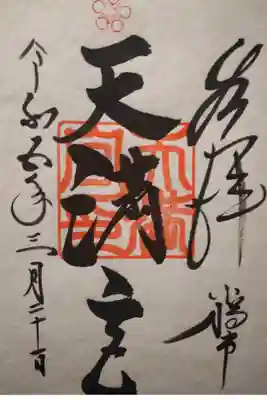 奉拝
天満宮
令和五年三月二十一日